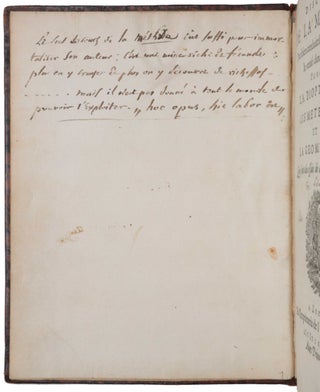 Le seul discours de la méthode eut suffi pour immor-
taliser son auteur; c'est une mine riche & féconde:
plus on y creuse & plus on y découvre de richesses
. . . . . mais il n'est pas donné à tout le monde de
pouvoir l'exploiter. " hoc opus, hic labor est "
LA DIOPT
LES METE
ET
LA GEOM